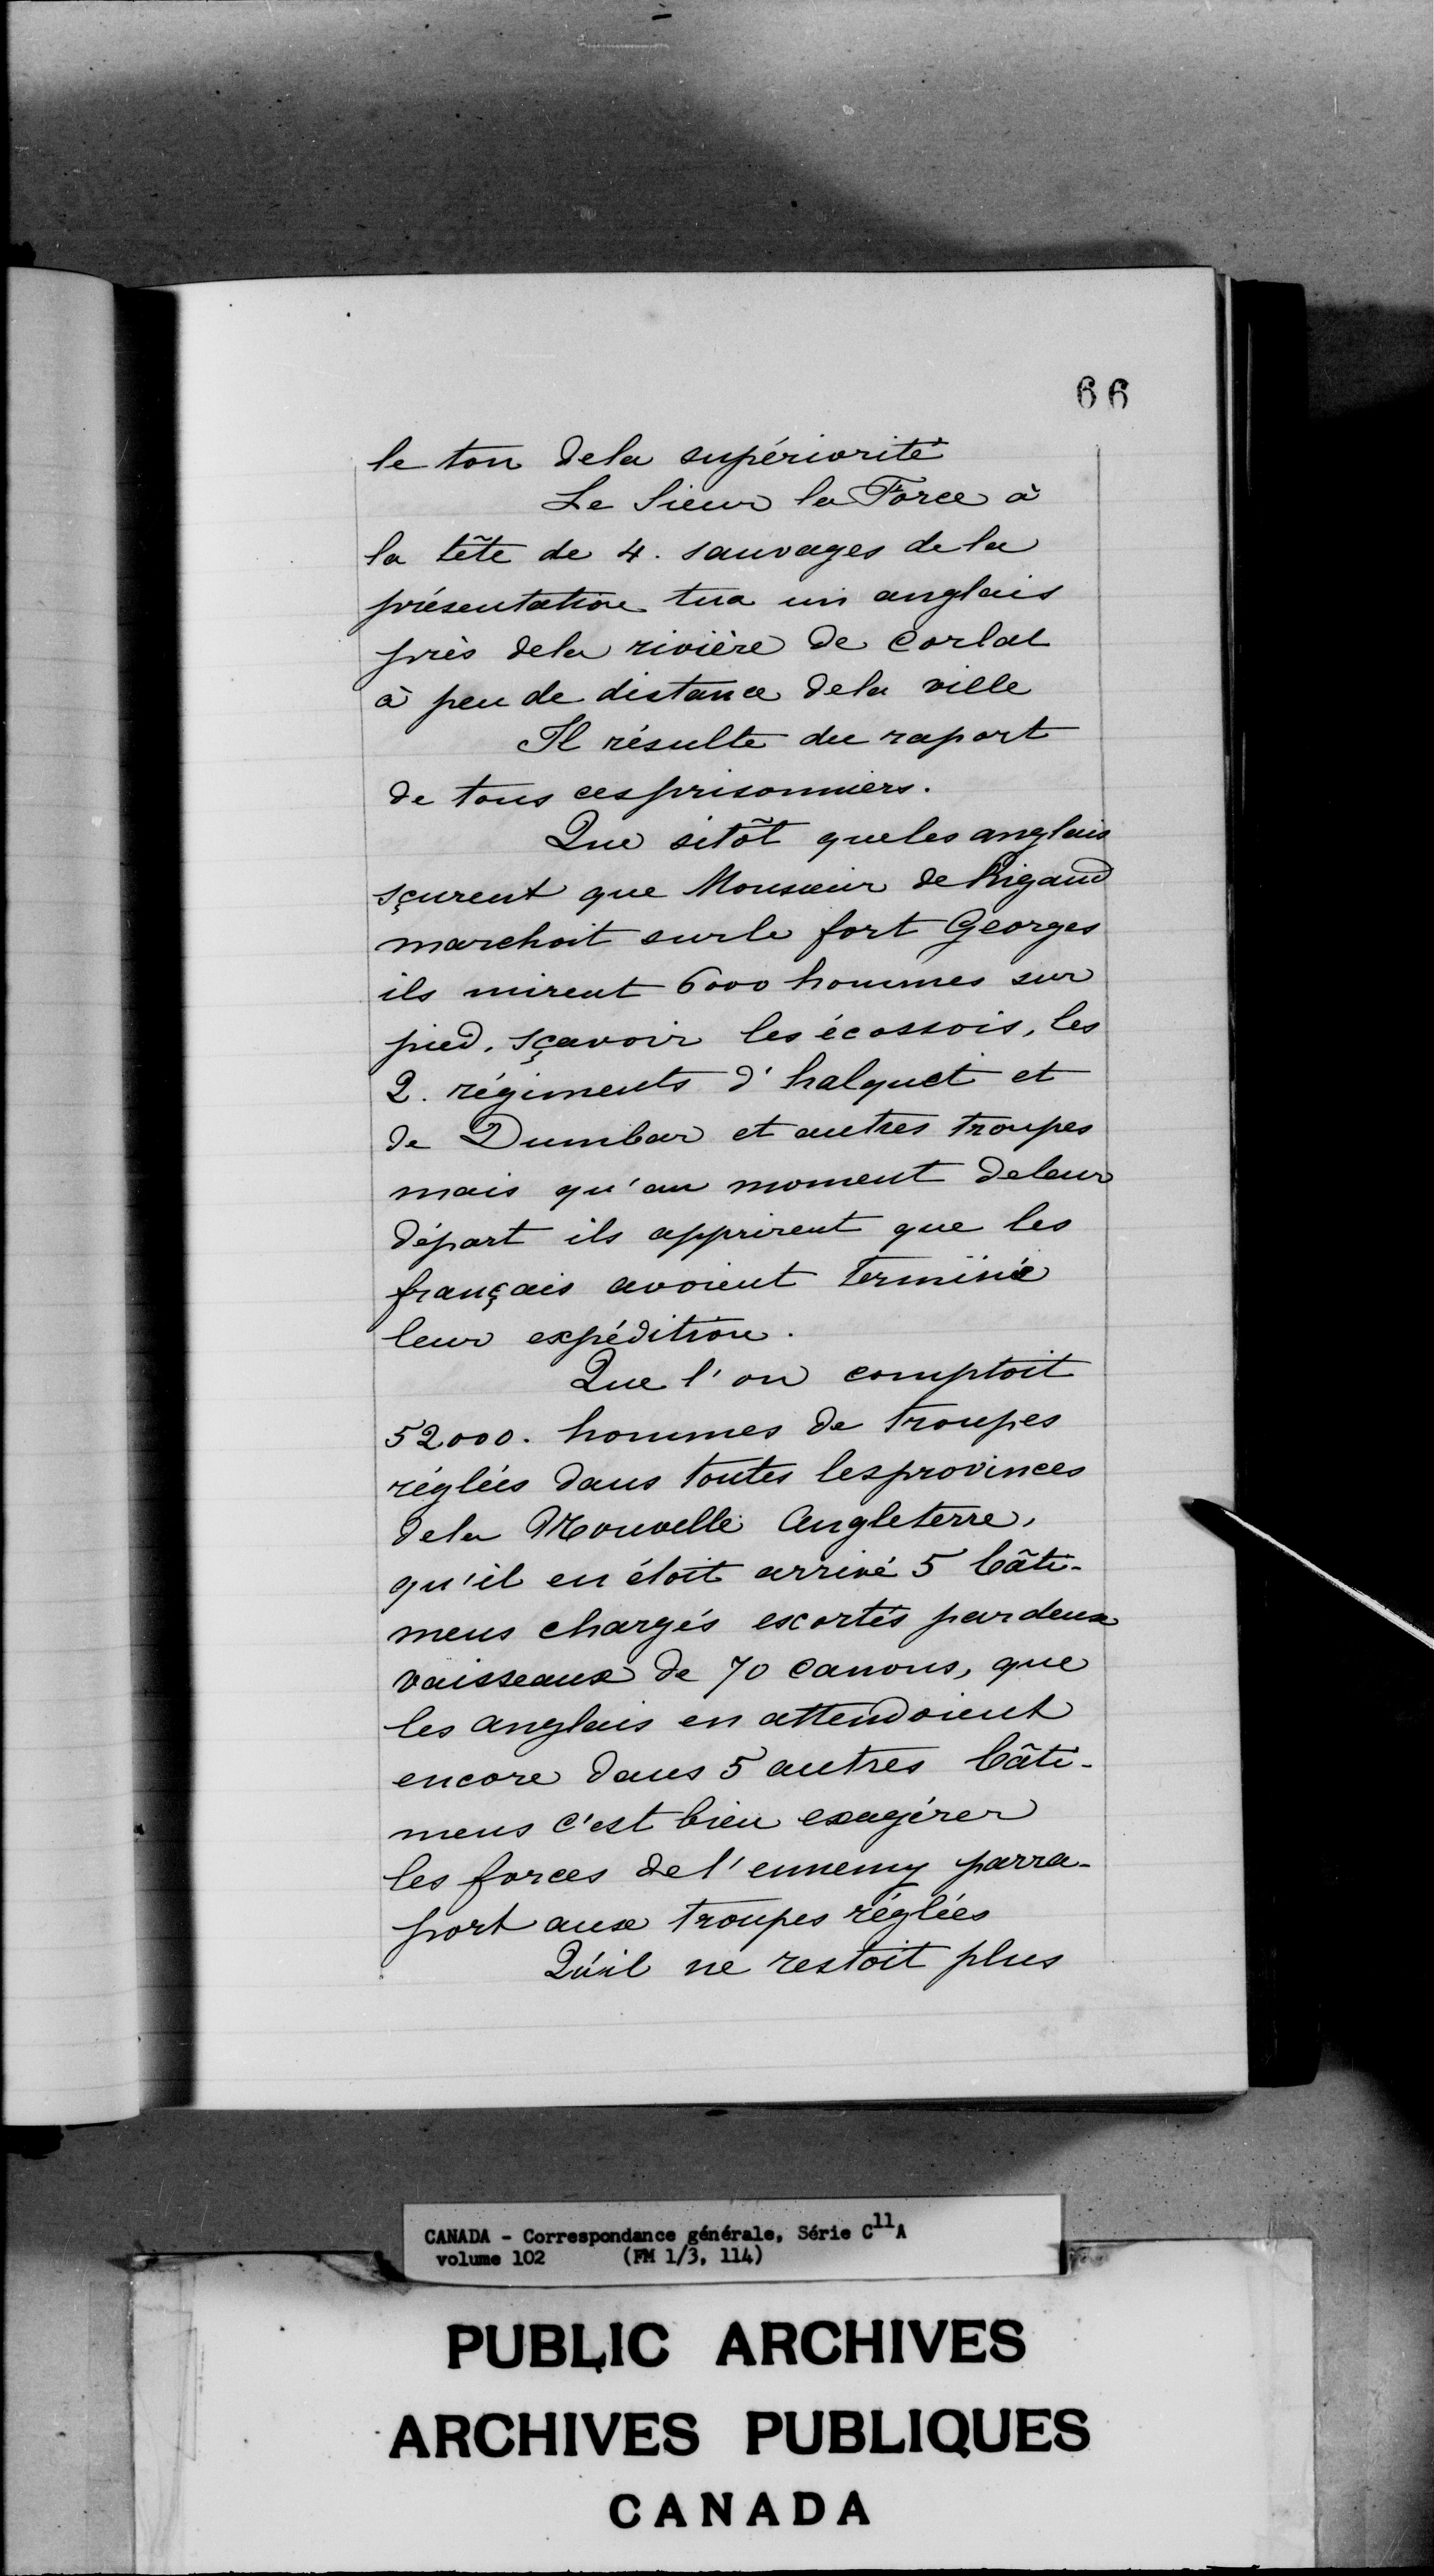 66
le ton dela supériorité
Le Sieur la Force à
la tête de 4. sauvages dela
présentation tua un anglais
près dela rivière de Corlat
à peu de distance dela ville
Il résulte du raport
de tous cesprisonniers.
Que sitôt queles anglais
sçurent que Monsieur de Rigaud
marchoit surle fort Georges
ils mirent 6000 hommes sur
pied, sçavoir les écossois, les
2. régiments d'halquet et
de Dumbar et autres troupes
mais qu'au moment deleur
départ ils apprirent que les
français avoient terminé
leur expédition.
Que l'on comptoit
52000. hommes de troupes
réglées dans toutes lesprovinces
dela Nouvelle Angleterre,
qu'il en étoit arrivé 5 bâti-
mens chargés escortés pardeux
vaisseaux de 70 canons, que
les anglais en attendoient
encore dans 5 autres bâti-
mens c'est bien exagérer
les forces del'ennemy parra-
port aux troupes réglées
Qu'il ne restoit plus
CANADA - Correspondance générale, Série C11A
volume 102 (FM 1/3, 114)
PUBLIC ARCHIVES
ARCHIVES PUBLIQUES
CANADA